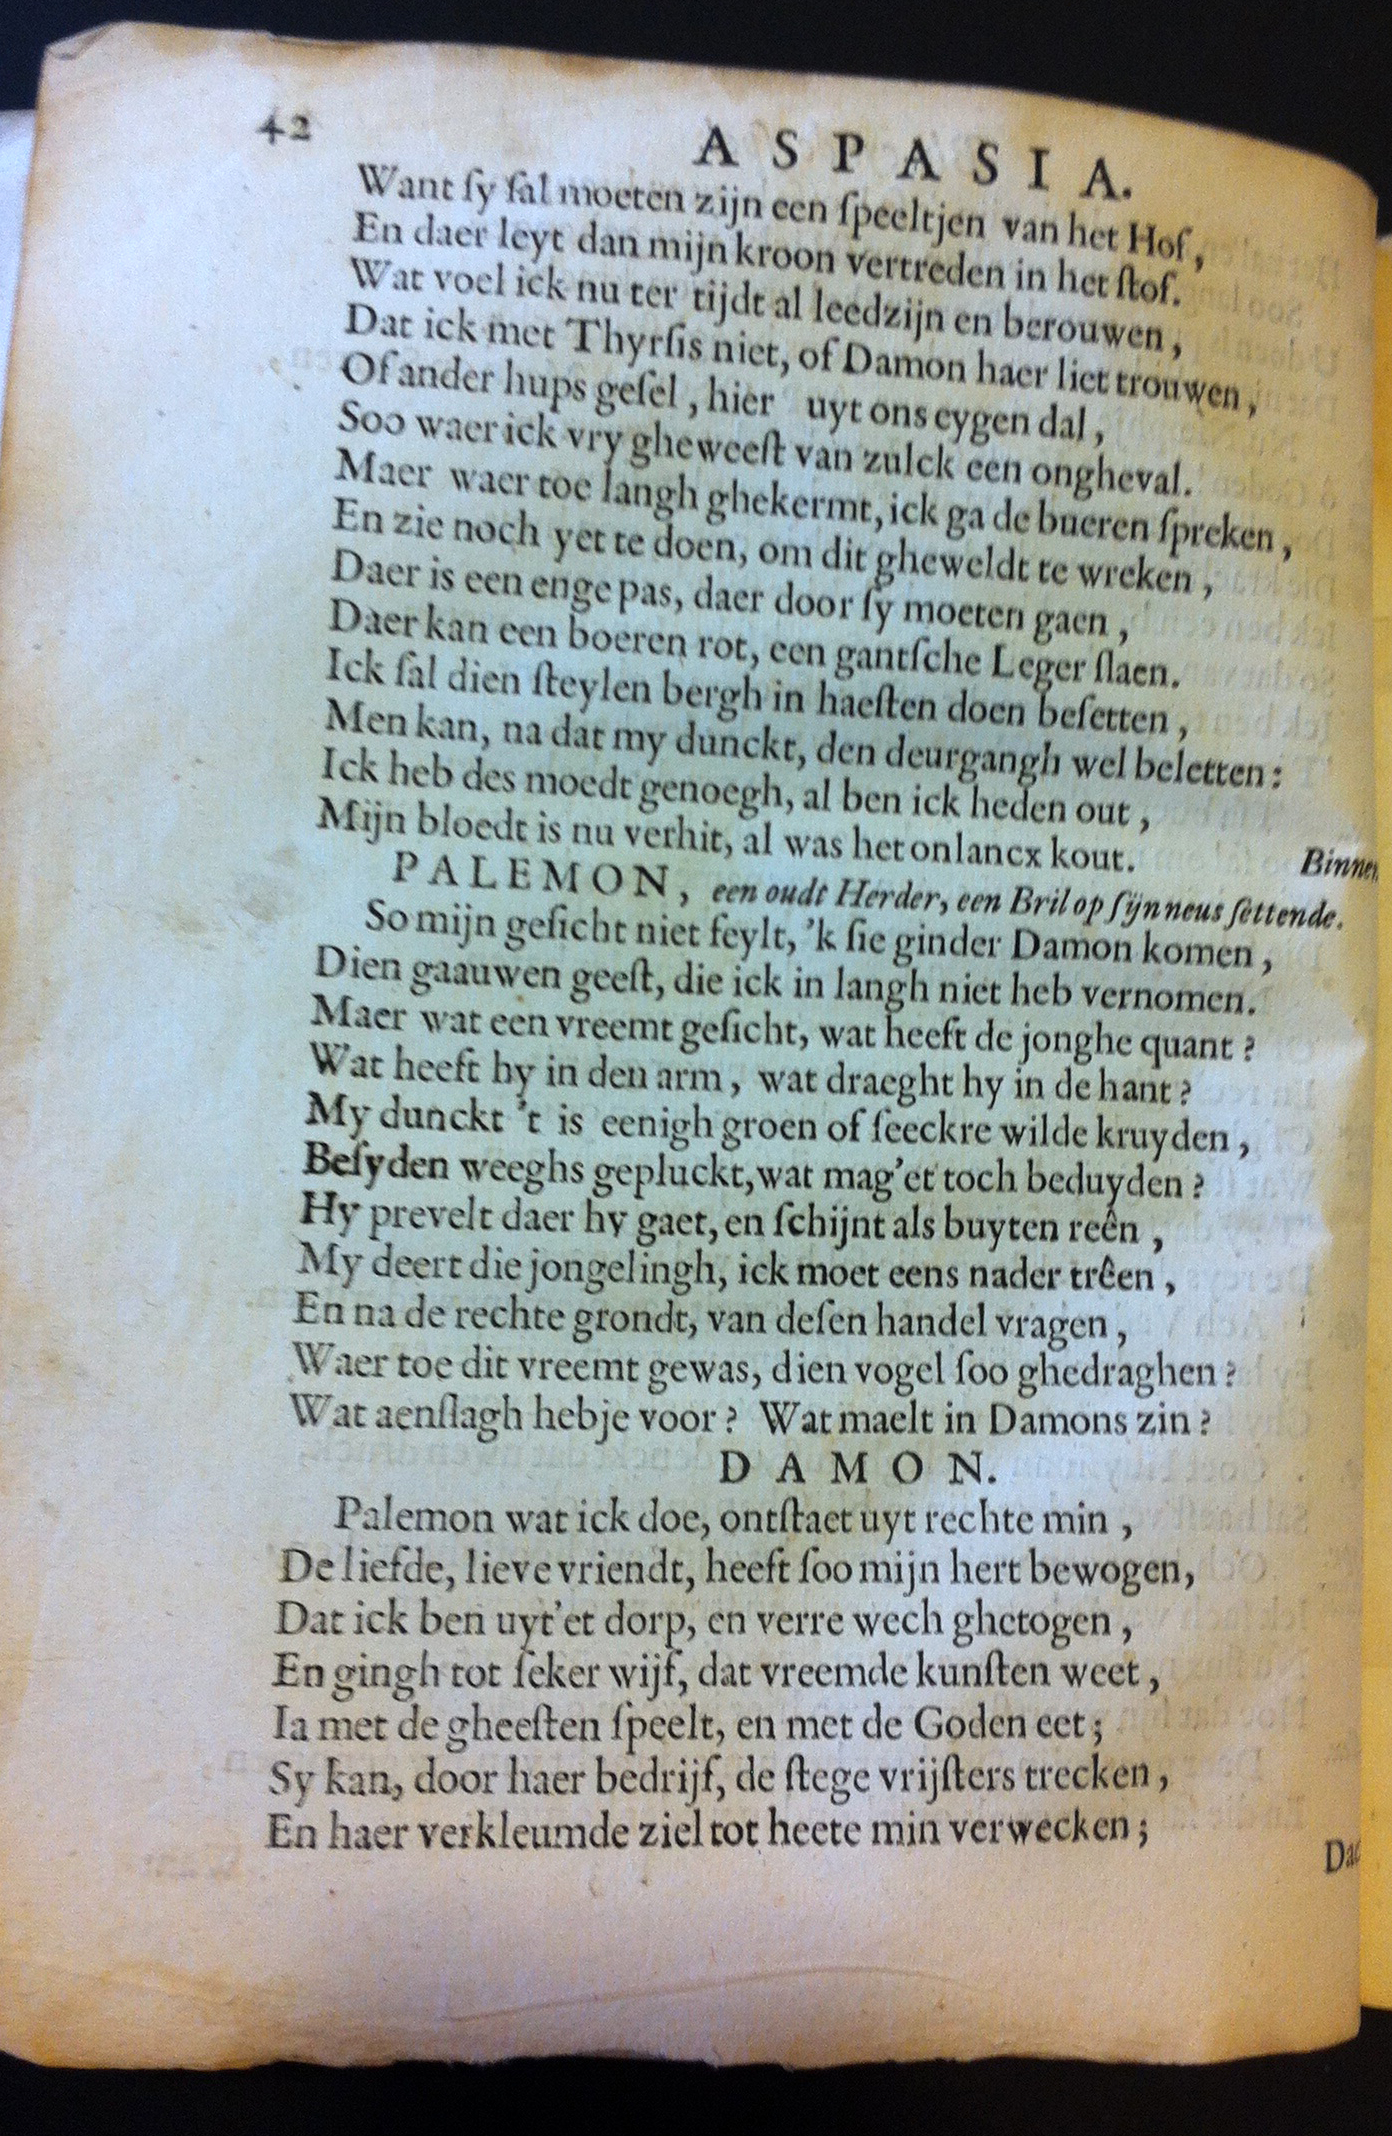 42
ASPASIA.
Want ſy ſal moeten zijn een ſpeeltjen van het Hof,
En daer leyt dan mijn kroon vertreden in het ſtof.
Wat voel ick nu ter tijdt al leedzijn en berouwen,
Dat ick met Thyrſis niet, of Damon haer liet trouwen,
Of ander hups geſel, hier uyt ons eygen dal,
Soo waer ick vry gheweeſt van zulck een ongheval.
Maer waer toe langh ghekermt, ick ga de bueren ſpreken,
En zie noch yet te doen, om dit gheweldt te wreken,
Daer is een enge pas, daer door ſy moeten gaen,
Daer kan een boeren rot, een gantſche Leger ſlaen.
Ick ſal dien ſteylen bergh in haeſten doen beſetten,
Men kan, na dat my dunckt, den deurgangh wel beletten:
Ick heb des moedt genoegh, al ben ick heden out,
Mijn bloedt is nu verhit, al was het onlancx kout. Binnen
PALEMON, een oudt Herder, een Bril op ſijn neus ſettende.
So mijn geſicht niet feylt, 'k ſie ginder Damon komen,
Dien gaauwen geeſt, die ick in langh niet heb vernomen.
Maer wat een vreemt geſicht, wat heeft de jonghe quant?
Wat heeft hy in den arm, wat draeght hy in de hant?
My dunckt 't is eenigh groen of ſeeckre wilde kruyden,
Beſyden weeghs gepluckt, wat mag'et toch beduyden?
Hy prevelt daer hy gaet, en ſchijnt als buyten reên,
My deert die jongelingh, ick moet eens nader trêen,
En na de rechte grondt, van deſen handel vragen,
Waer toe dit vreemt gewas, dien vogel ſoo ghedraghen?
Wat aenſlagh hebje voor? Wat maelt in Damons zin?
DAMON.
Palemon wat ick doe, ontſtaet uyt rechte min,
De liefde, lieve vriendt, heeft ſoo mijn hert bewogen,
Dat ick ben uyt'et dorp, en verre wech ghetogen,
En gingh tot ſeker wijf, dat vreemde kunſten weet,
Ia met de gheeſten ſpeelt, en met de Goden eet;
Sy kan, door haer bedrijf, de ſtege vrijſters trecken,
En haer verkleumde ziel tot heete min verwecken;